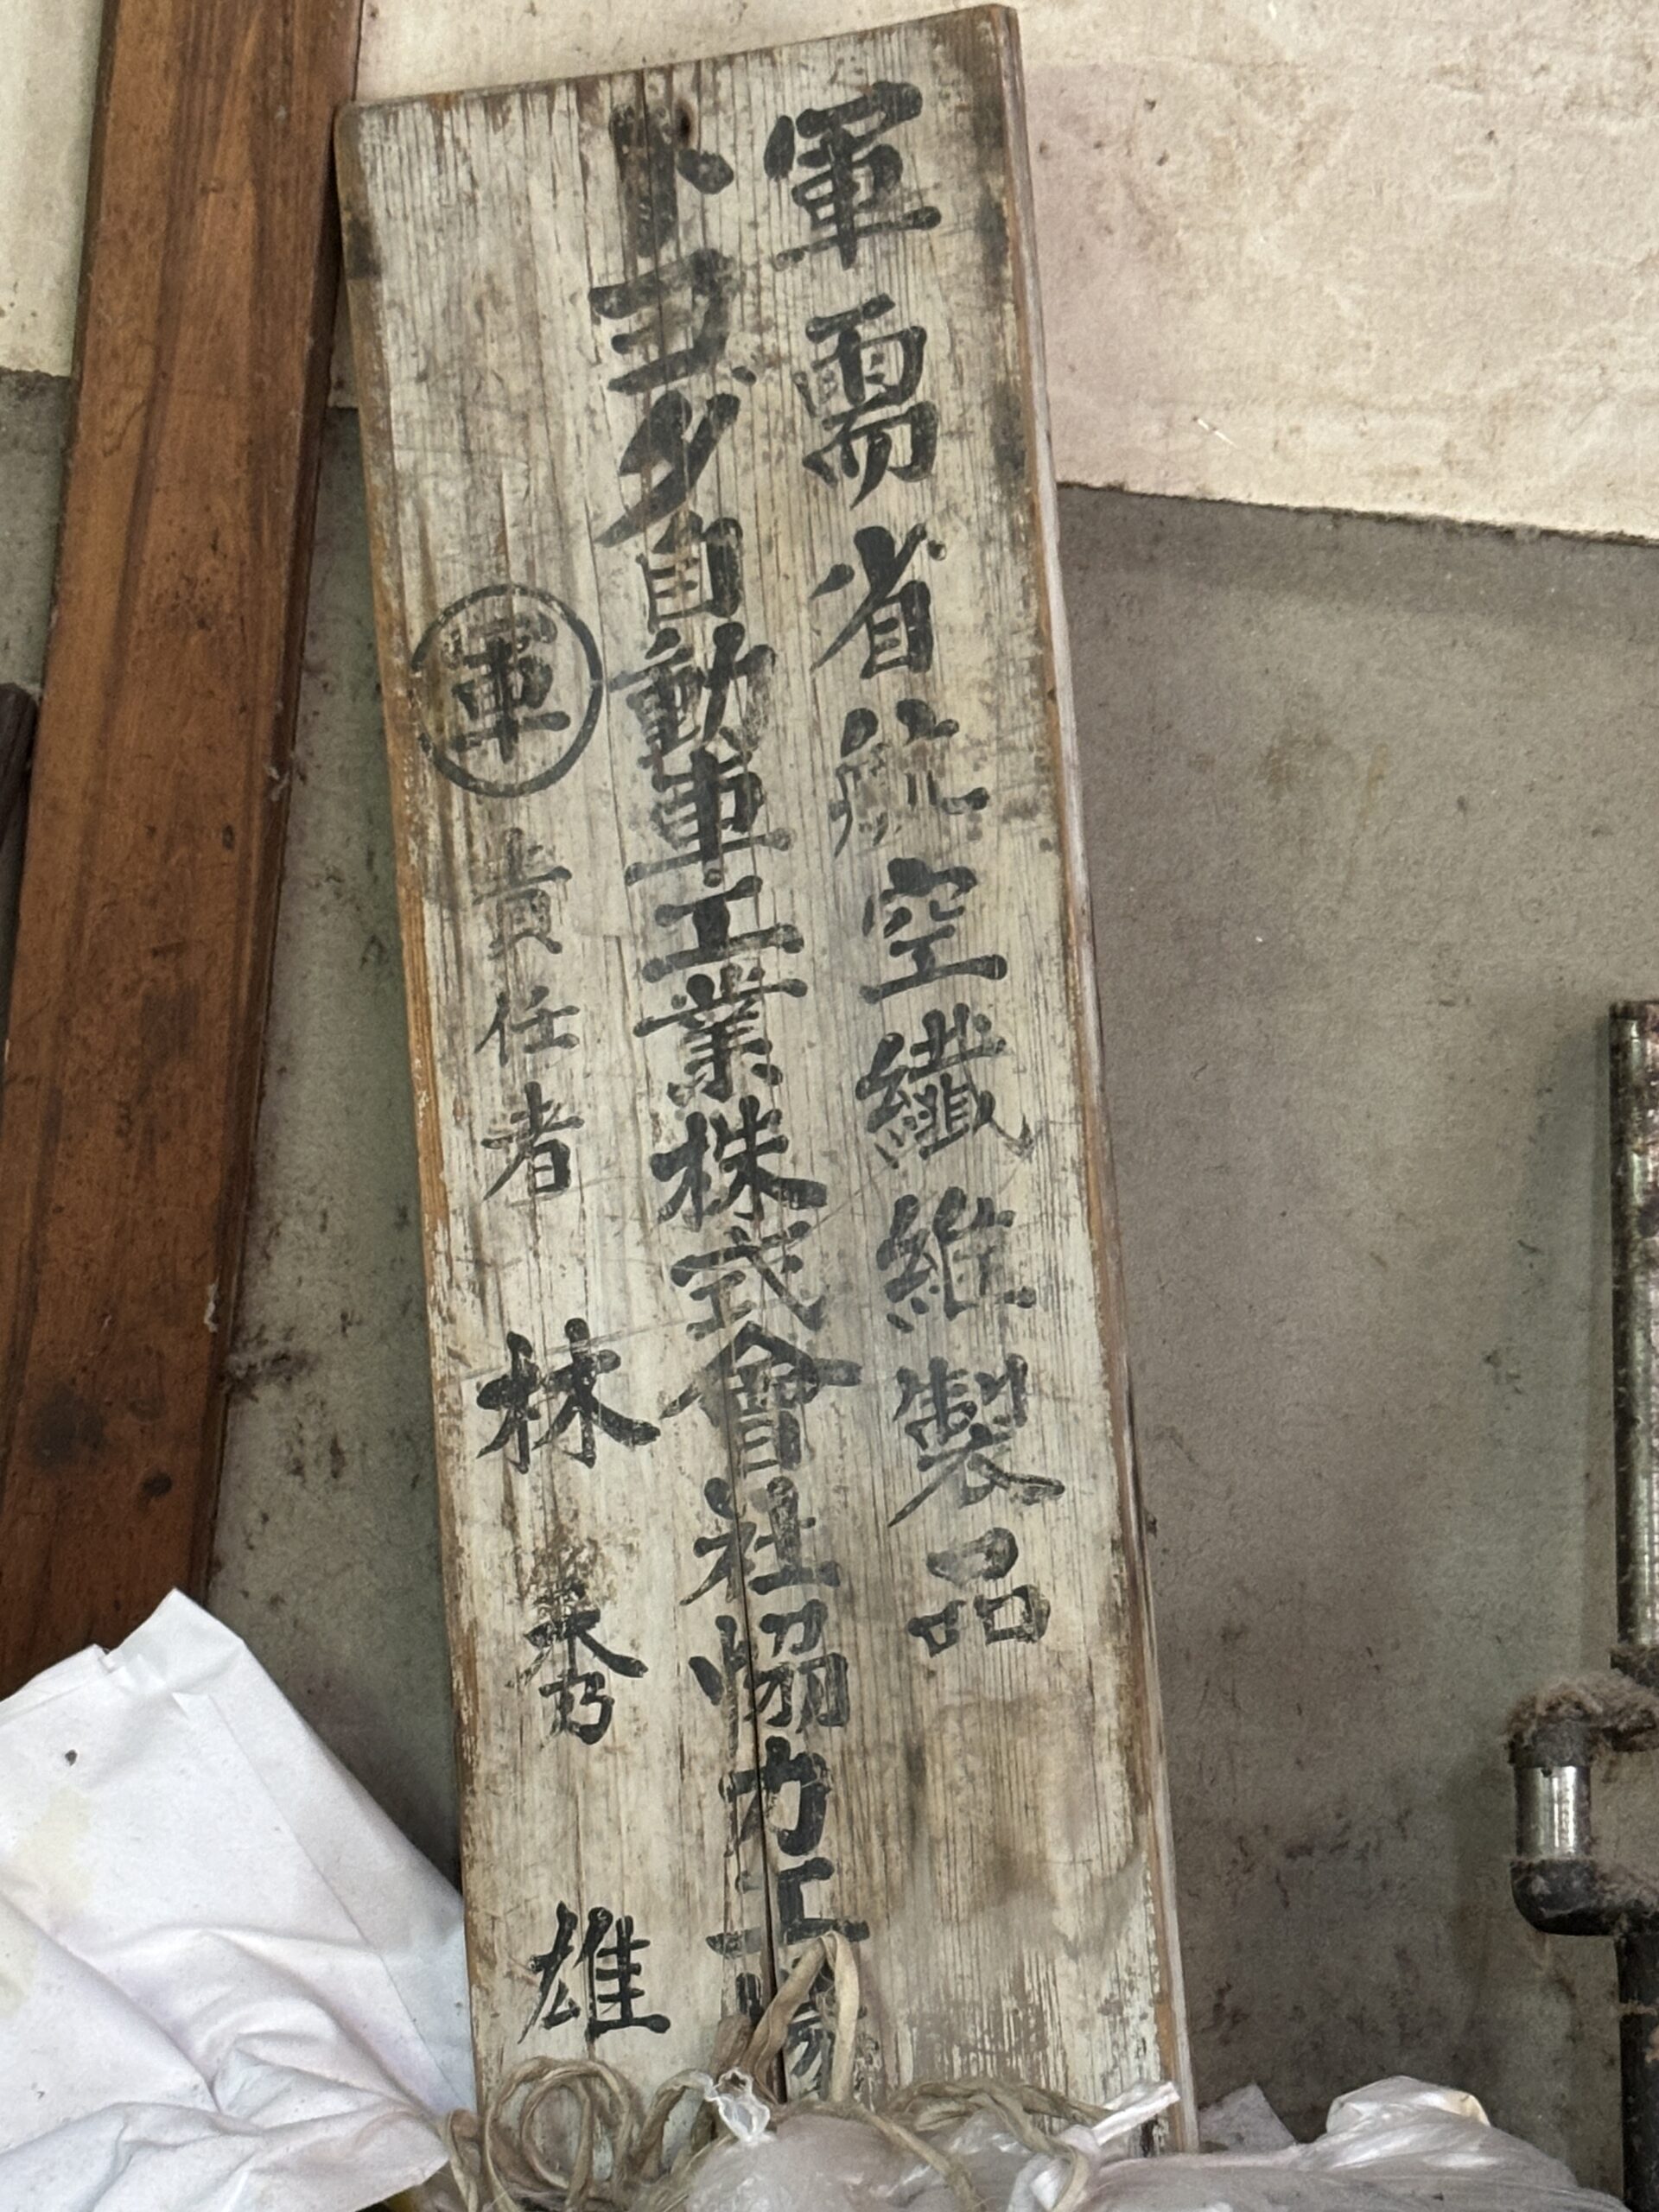 軍需省航空纖維製品
トヨタ自動車工業株式會社協力工場
軍 責任者 林秀雄